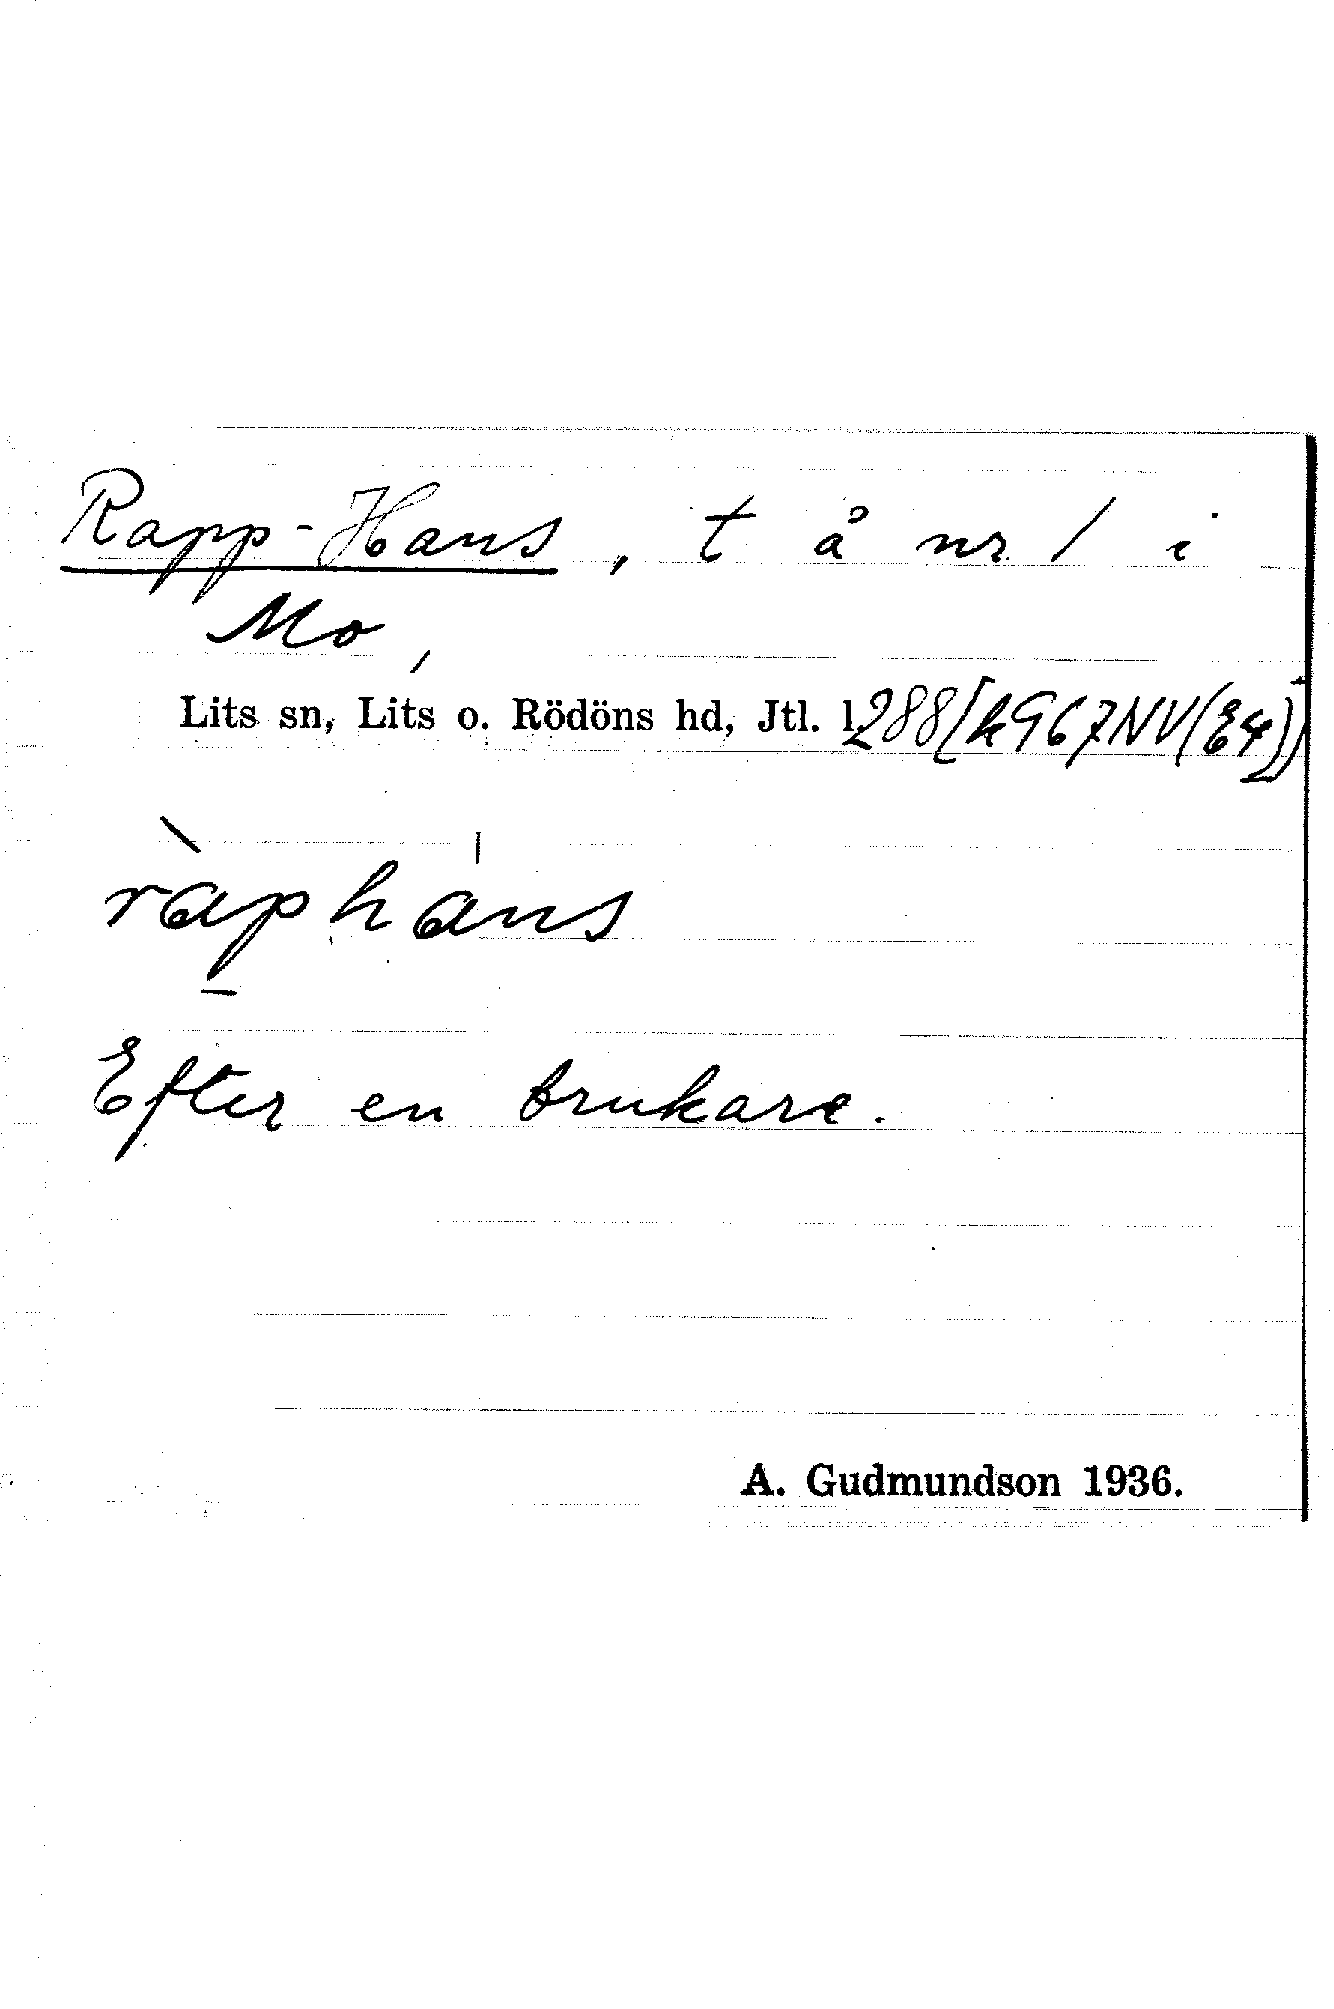 Rapp-Hans, t å nr 1 i
Mo,
Lits sn, Lits o. Rödöns hd, Jtl. l. 288[k967NV(E4)]
ràphans
Efter en brukare.
A. Gudmundson 1936.